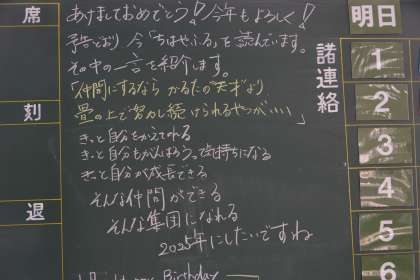 席
刻
退
あけましておめでとう!今年もよろしく!
予告どおり 今「ちはやふる」を読んでいます。
その中の一言を紹介します。
「仲間にするなら かるたの天才より
畳の上で努力し続けられるやつがいい」
きっと自分をかえてくれる
きっと自分もがんばろうって気持ちになる
きっと自分が成長できる
そんな仲間ができる
そんな集団になれる
2025年にしたいですね
Birthday
明日
諸連絡
1
2
3
4
5
6